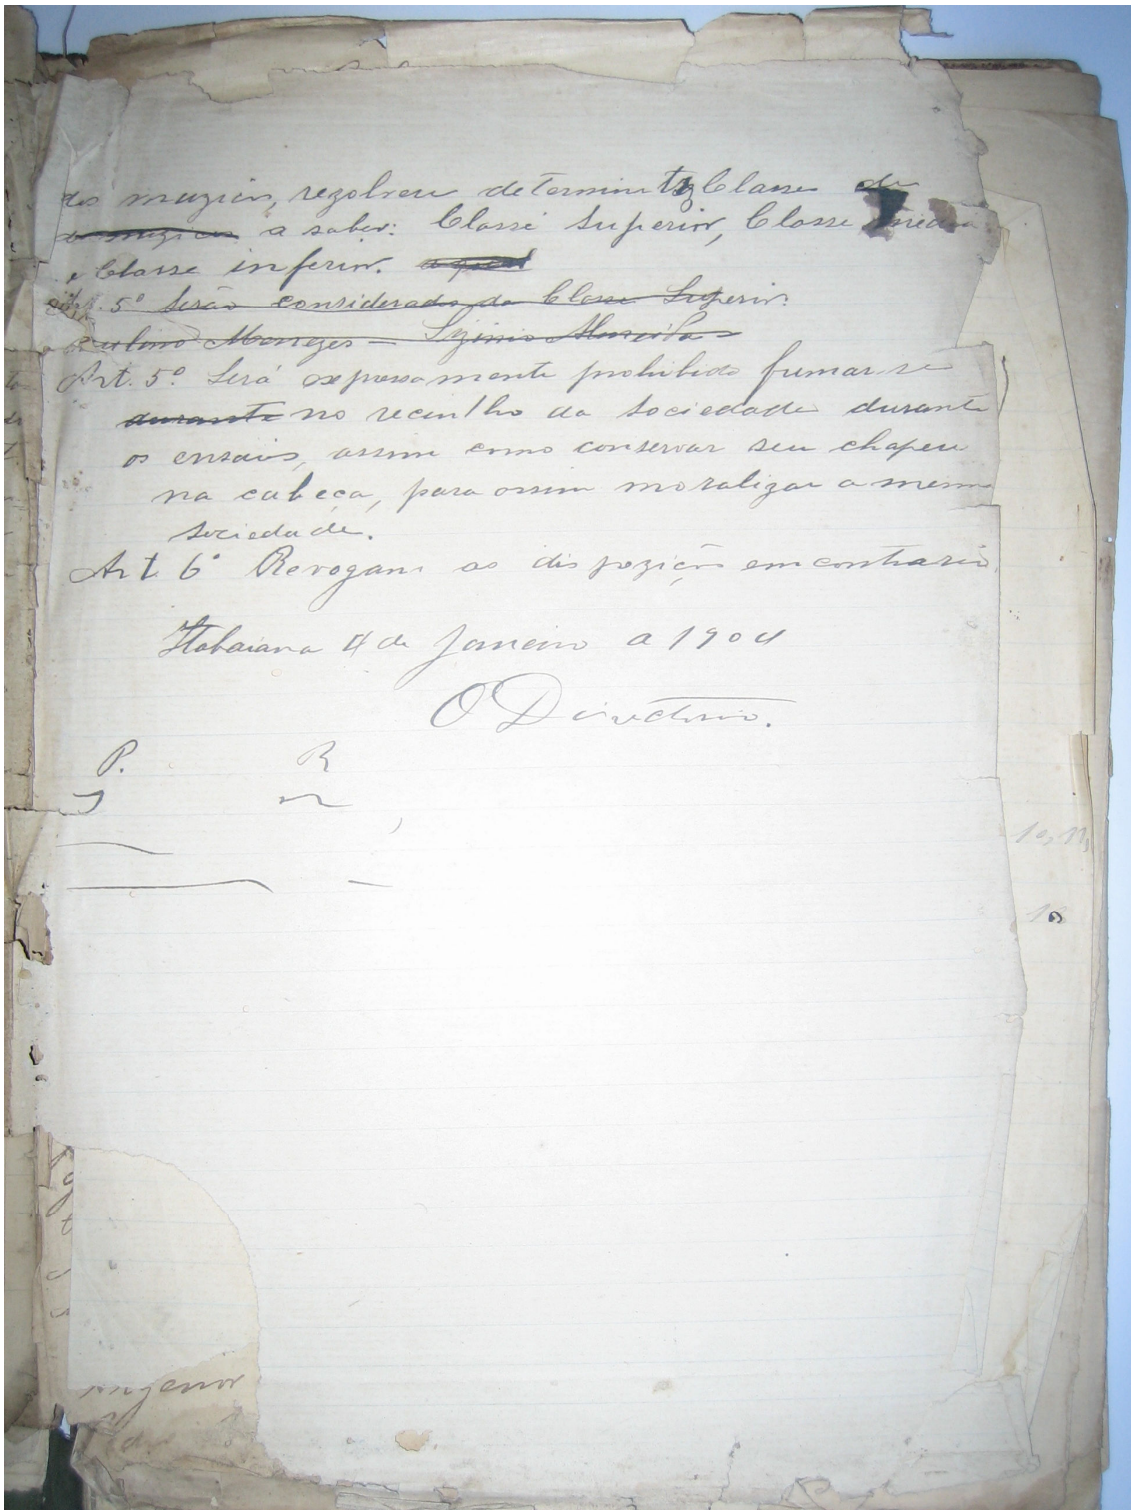 dos muzicos, rezolveu determinar tz Classe de
o muzicos a saber: Classe Superior, Classe media
e Classe inferior.
5º Serão considerados da Classe Superior
ulino Menezes – Lizinio Almeida –
Art. 5º Será expressamente prohibido fumar-se
durante no recintho da Sociedade durante
os ensaios, assim como conservar seu chapeu
na cabeça, para assim moralizar a mesma
Sociedade.
Art 6º Revogam as dispozições em contrario.
Itabaiana 4 de Janeiro a 1904
O Directorio.
P. R